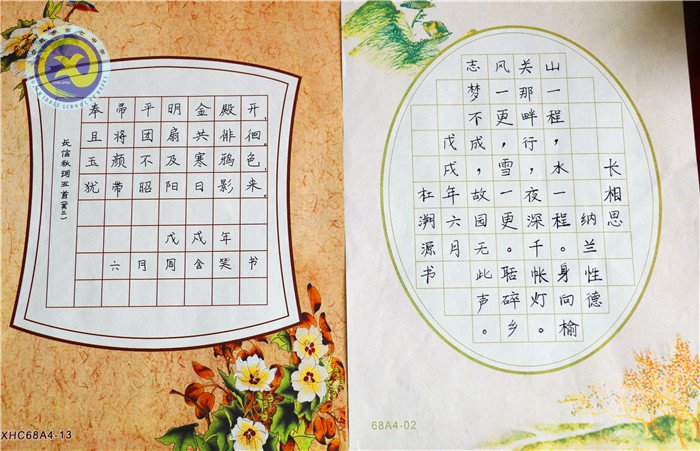 长信秋词五首(其三)
奉帚平明金殿开,
且将团扇共徘徊。
玉颜不及寒鸦色
犹带昭阳日影来。
戊戌年
六月周含笑书
XHC68A4-13
长相思
纳兰性德
山一程,水一程。身向榆
关那畔行,夜深千帐灯。
风一更,雪一更。聒碎乡
志梦不成,故园无此声。
戊戌年六月
杜溯源书
68A4-02